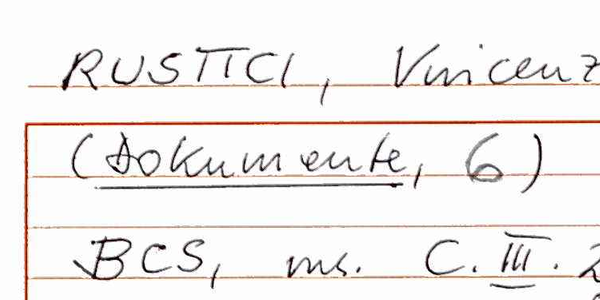 RUSTICI, Vincenz
(Dokumente, 6)
BCS, ms. C. III. 2